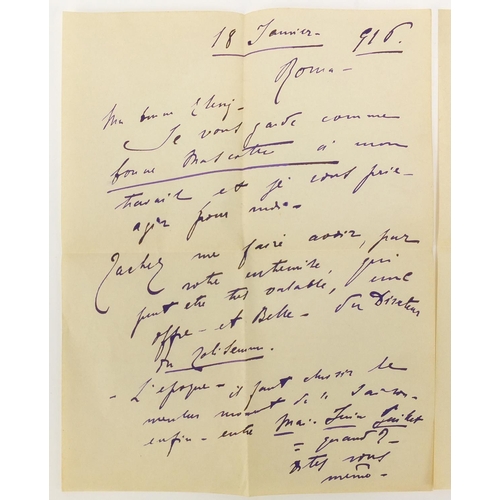 18 Janvier - 916.
Roma -
Ma bonne
Je vous garde comme
bonne Mascotte à mon
travail et je vous prie -
agir pour moi -
Tachez me faire avoir, par
votre entremise, qui
peut être très valable, une
offre - et Belle - du Directeur
du Coliseum.
- L'epoque - il faut choisir le
meilleur moment de la Saison
enfin - entre Mai - Juin Juillet
= quand? -
Dites vous
même -